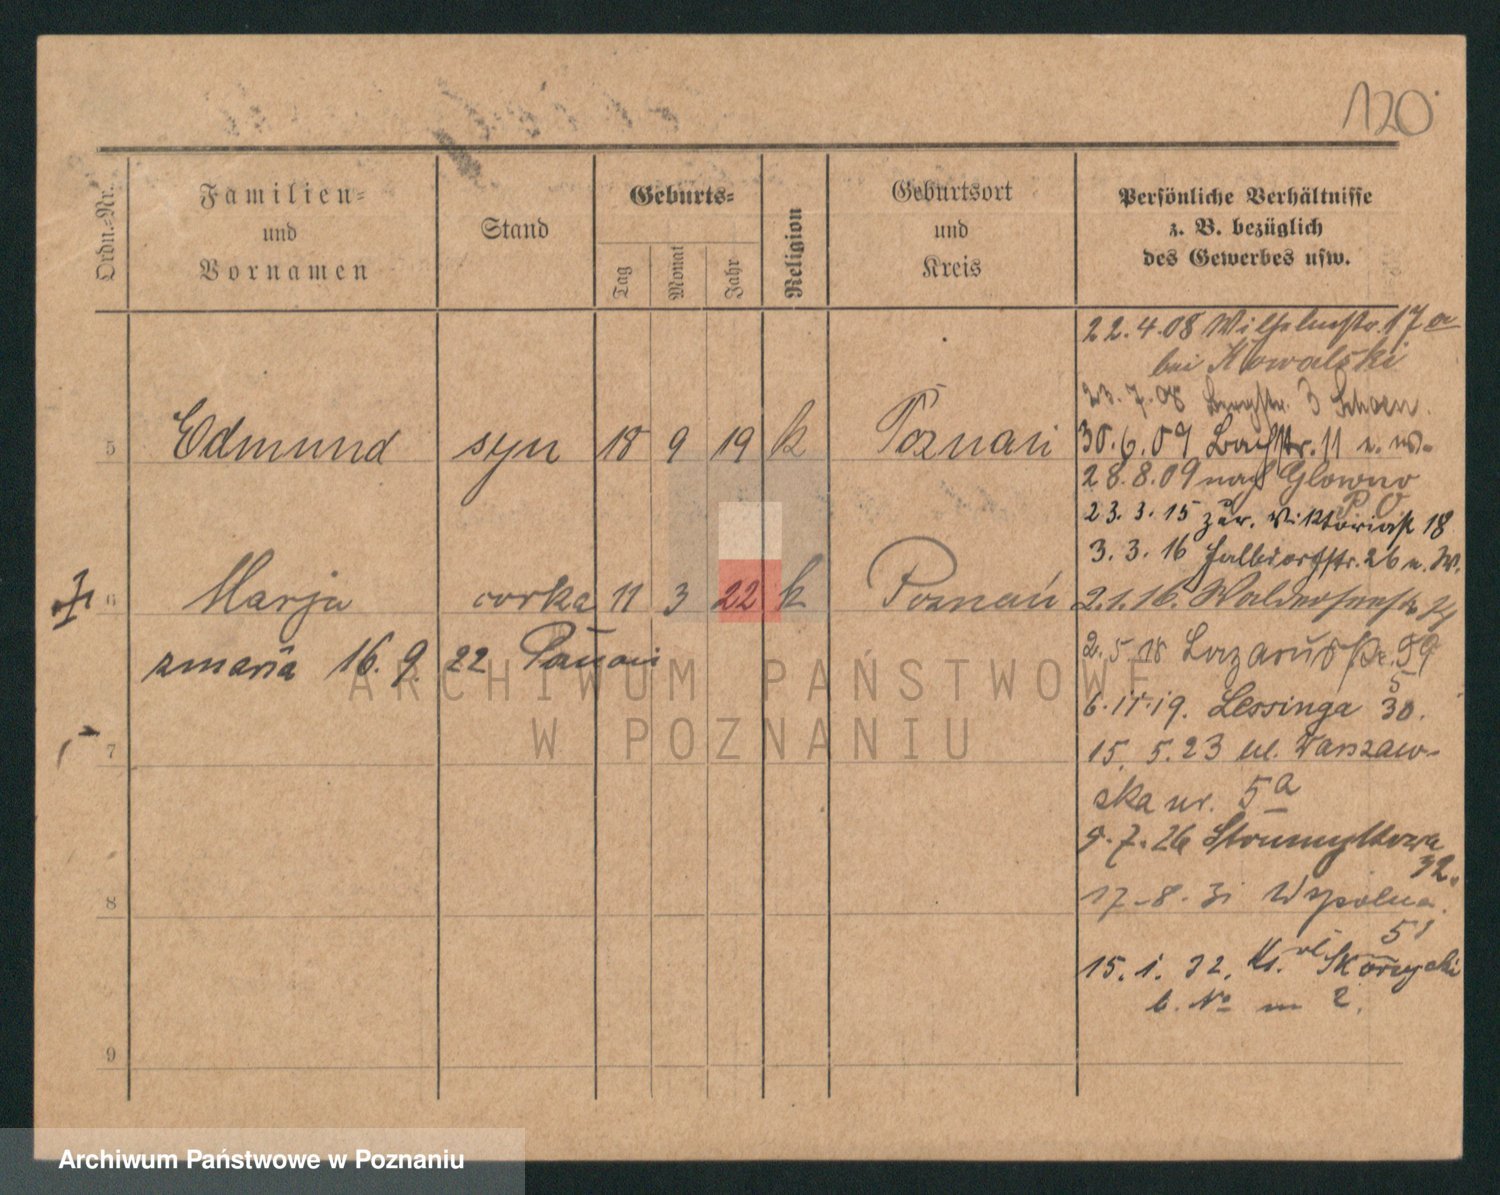 120
Ordn.-Nr.
Familien-
und
Vornamen
Stand
Geburts-
Tag
Monat
Jahr
Religion
Geburtsort
und
Kreis
Persönliche Verhältnisse
z. B. bezüglich
des Gewerbes usw.
5 Edmund syn 18 9 19 k Poznań
6 Marja corka 11 3 22 k Poznań
zmarła 16. 9. 22 Poznań
7
8
9
22.4.08 Wilhelmstr. 17a
bei Kowalski
23.7.08 Bergstr. 3
30.6.09 Bachstr. 11
28.8.09 nach Glowno
P. O.
23. 3. 15 zur. Viktoriast 18
3. 3. 16
2.1.16. Walderseestr
2. 5 18 Lazarus
6.11.19. Lessinga 30.
15. 5. 23 ul. Warszaw-
ska nr. 5a
9.7.26 Strumykowa
32.
17-8-31 Wspólna
51
15. 1. 32.
b. No m 2.
ARCHIWUM PAŃSTWOWE
W POZNANIU
Archiwum Państwowe w Poznaniu